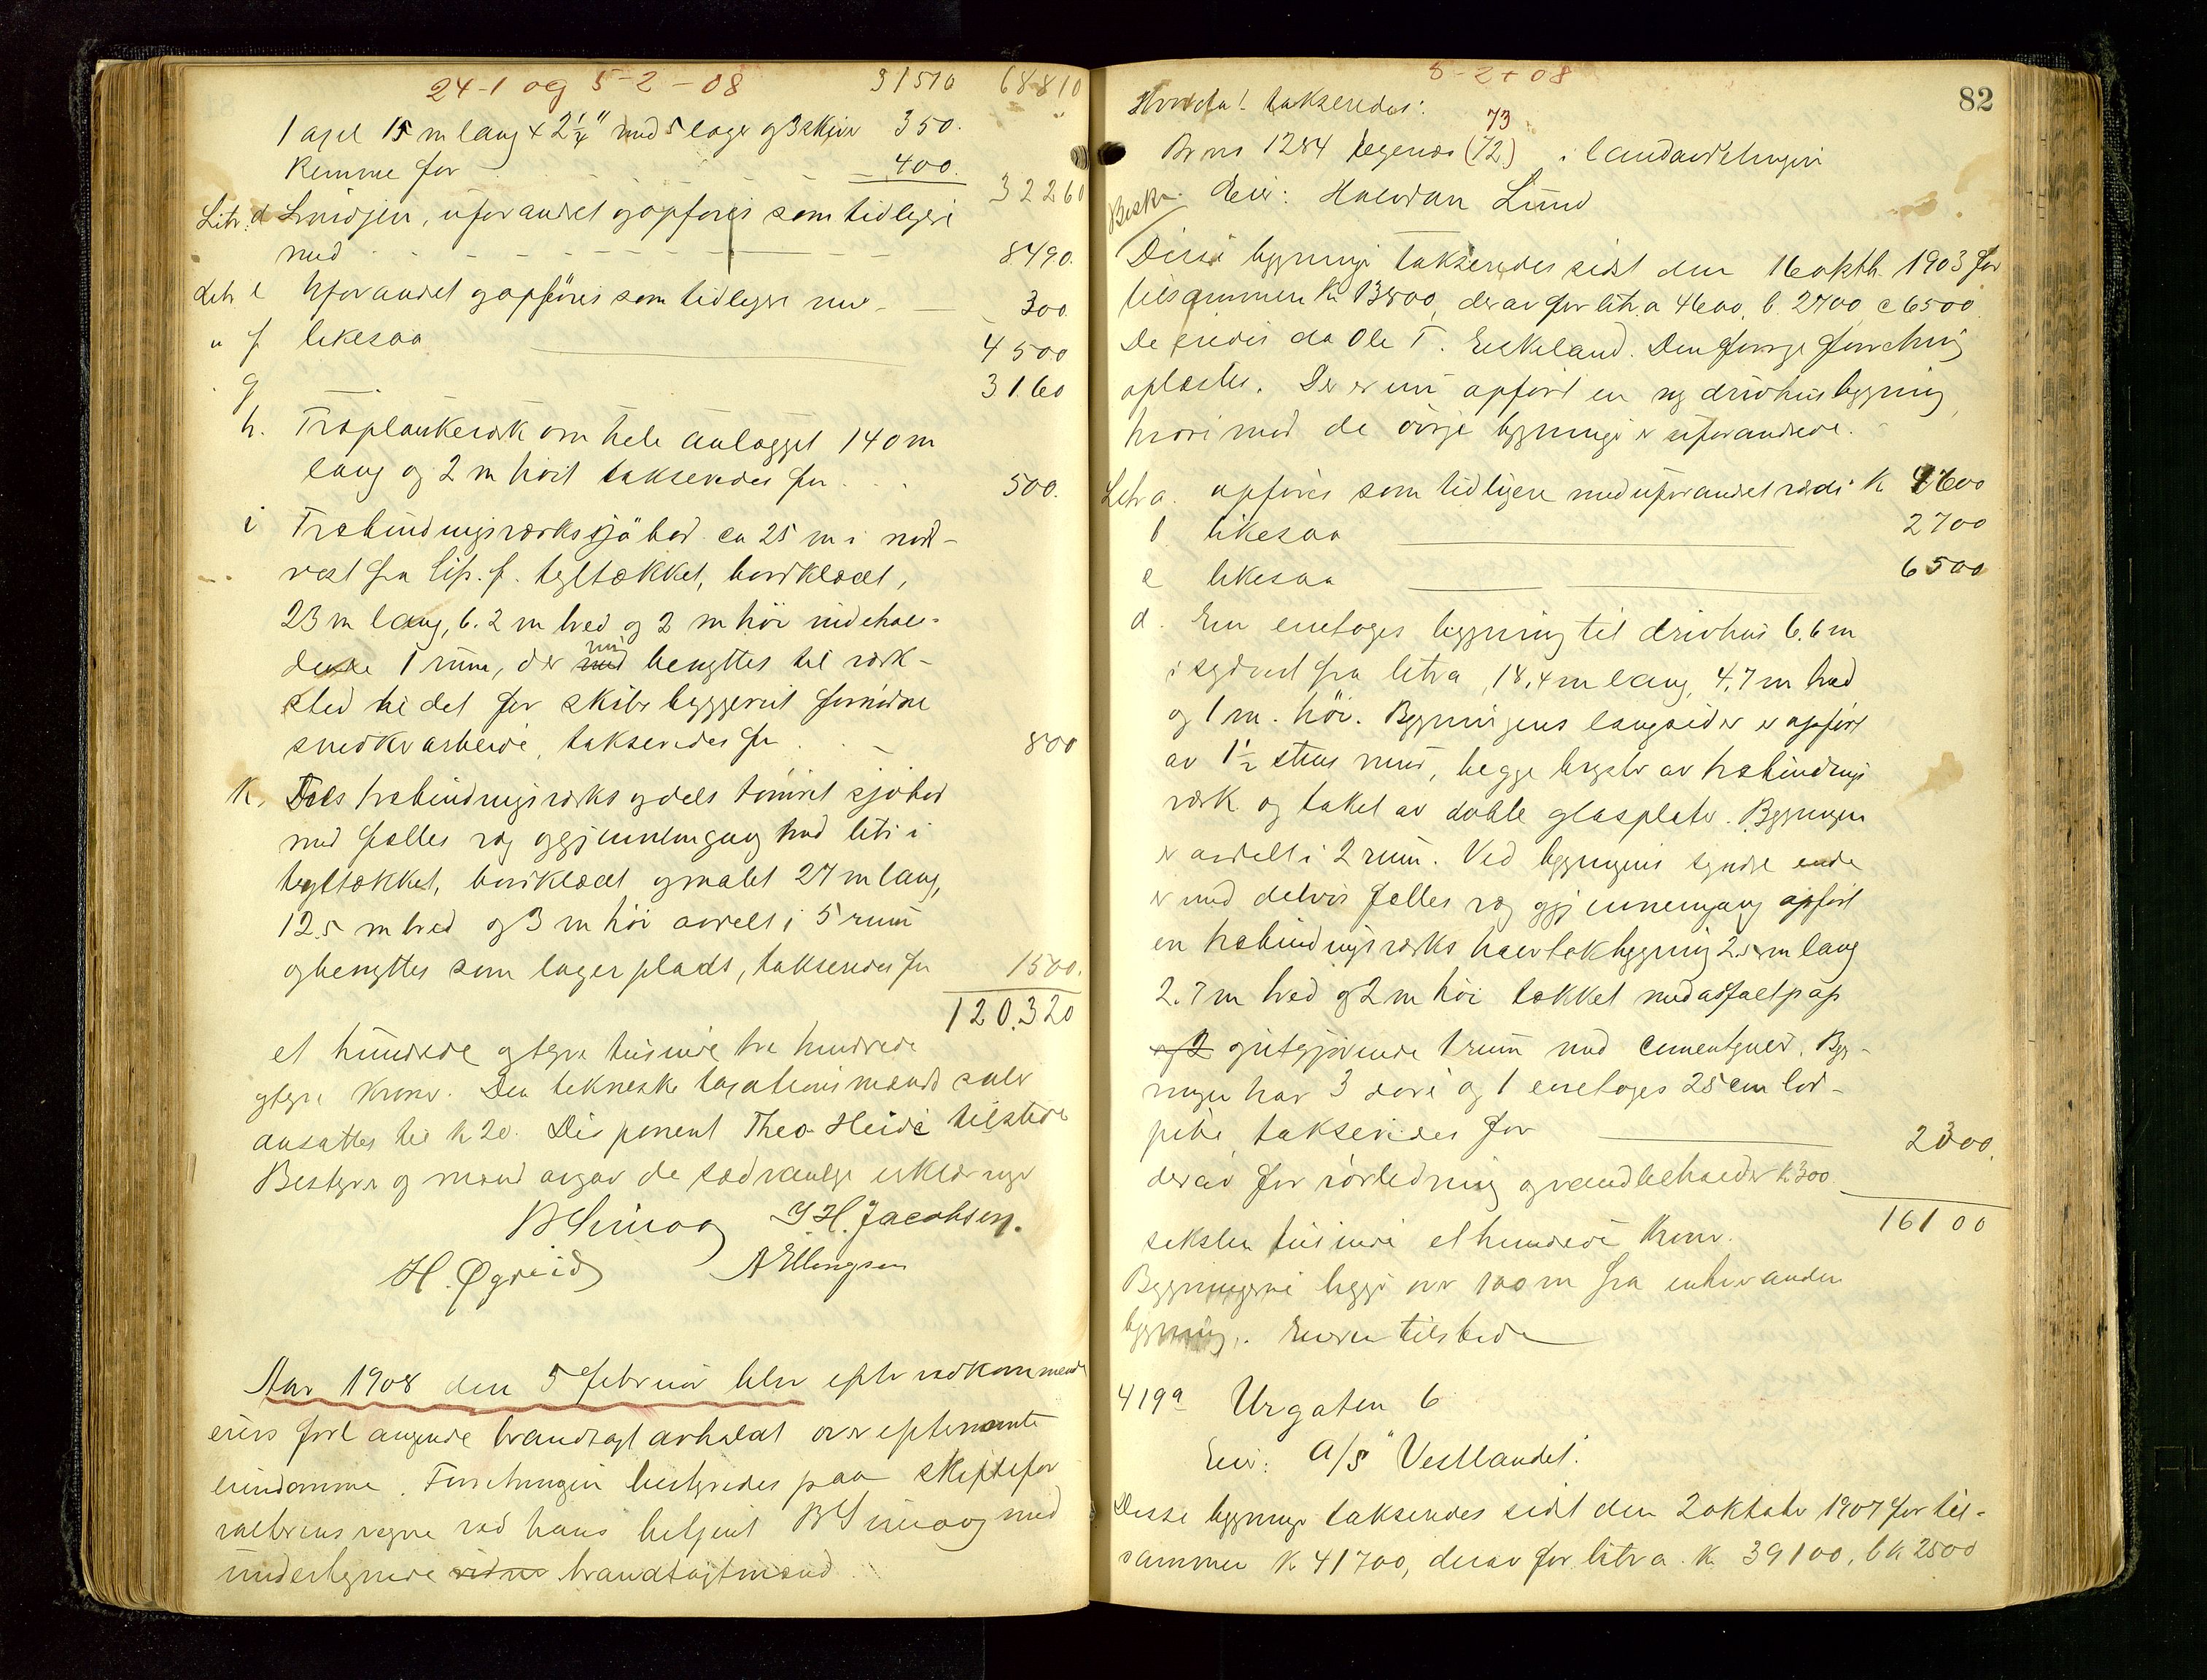 24-1 og 5-2-08 31510 68810
1 axel 15 m lang x 2 1/4" med 5 lager og 3 skiver 350.
Remme for 400.
32260
Litr. d Smidjen, uforandret og opføres som tidligere
med 8490.
Litr e Uforandret og opføres som tidligere med 300.
" f likesaa 4500
g 3160
h. Træplankeværk om hele anlægget 140 m
lang og 2 m höit takseredes for 500.
i Træbindingsværks sjöbod ca 25 m i nord-
vest fra litr. f. tegltækket, bordklædt,
23 m lang, 6.2 m bred og 2 m höi indehol-
dende 1 rum, der nu benyttes til verk-
sted til det for skibsbyggeriet fornödne
snedkerarbeide, takseredes for 800
k. Dels træbindingsværks og dels tömret sjöbod
med fælles væg og gjennemgang med litr i
tegltækket, bordklædt og malet 27 m lang,
12.5 m bred og 3 m höi avdelt i 5 rum
og benyttes som lagerplads, takseredes for 1500.
120.320
et hundrede og tyve tusinde tre hundrede
og tyve kroner. Den tekniske taxationsmands salær
ansattes til k 20. Disponent Theo Heide tilstede
Bestyrer og mænd avgav de sædvanlige erklæringer
J H. Jacobsen.
H. Øgreid A Ellingsen
Aar 1908 den 5 februar blev efter vedkommende
eiers forlangende brandtaxt avholdt over efternævnte
eiendomme. Forretningen bestyredes paa skiftefor
valterens vegne ved hans betjent med
undertegnede brandtaxtmænd
5-2-08 82
Hvorefter takseredes:
73
Br no 1284 (72) i landavdelingen
Beskr. Eier: Halvdan Lund
Disse bygninger takseredes sidst den 16 oktbr. 1903 for
tilsammen k 13800, derav for litr. a 4600, b. 2700 c 6500.
De eiedes da Ole T. Eskeland. Den forrige forretning
oplæstes. Der er nu opført en ny drivhusbygning,
hvorimod de övrige bygninger er uforandrede.
Litr a. opføres som tidligere med uforandret værdi k 4600
b. likesaa 2700
c likesaa 6500
d. En enetages bygning til drivhus 6.6 m
i sydvest fra litr a, 18,4 m lang, 4.7 m bred
og 1 m. höi. Bygningens langsider er opført
av 1 1/2 stens mur, begge bryster av træbindings
værk og taket av doble glasplater. Bygningen
er avdelt i 2 rum. Ved bygningens syndre ende
er med delvis fælles væg og gjennemgang opført
en træbindingsværks halvtakbygning 2.5 m lang
2.7 m bred og 2 m höi tækket med asfaltpap
og 2 og utgjörende 1 rum med cementgulv. Byg-
ningen har 3 döre og 1 enetages 25 cm lod-
pibe, takseredes for 2300.
derav for rörledning og vandbeholder k 300.
16100
seksten tusinde et hundrede kroner.
Bygningerne ligger over 100 m fra enhver anden
bygning. Eieren tilstede
419a Urgaten 6
Eier: A/S "Vestlandet."
Disse bygninger takseredes sidst den 2 oktober 1907 for til-
sammen k 41700, derav for litr a. k 39100, b k 2500